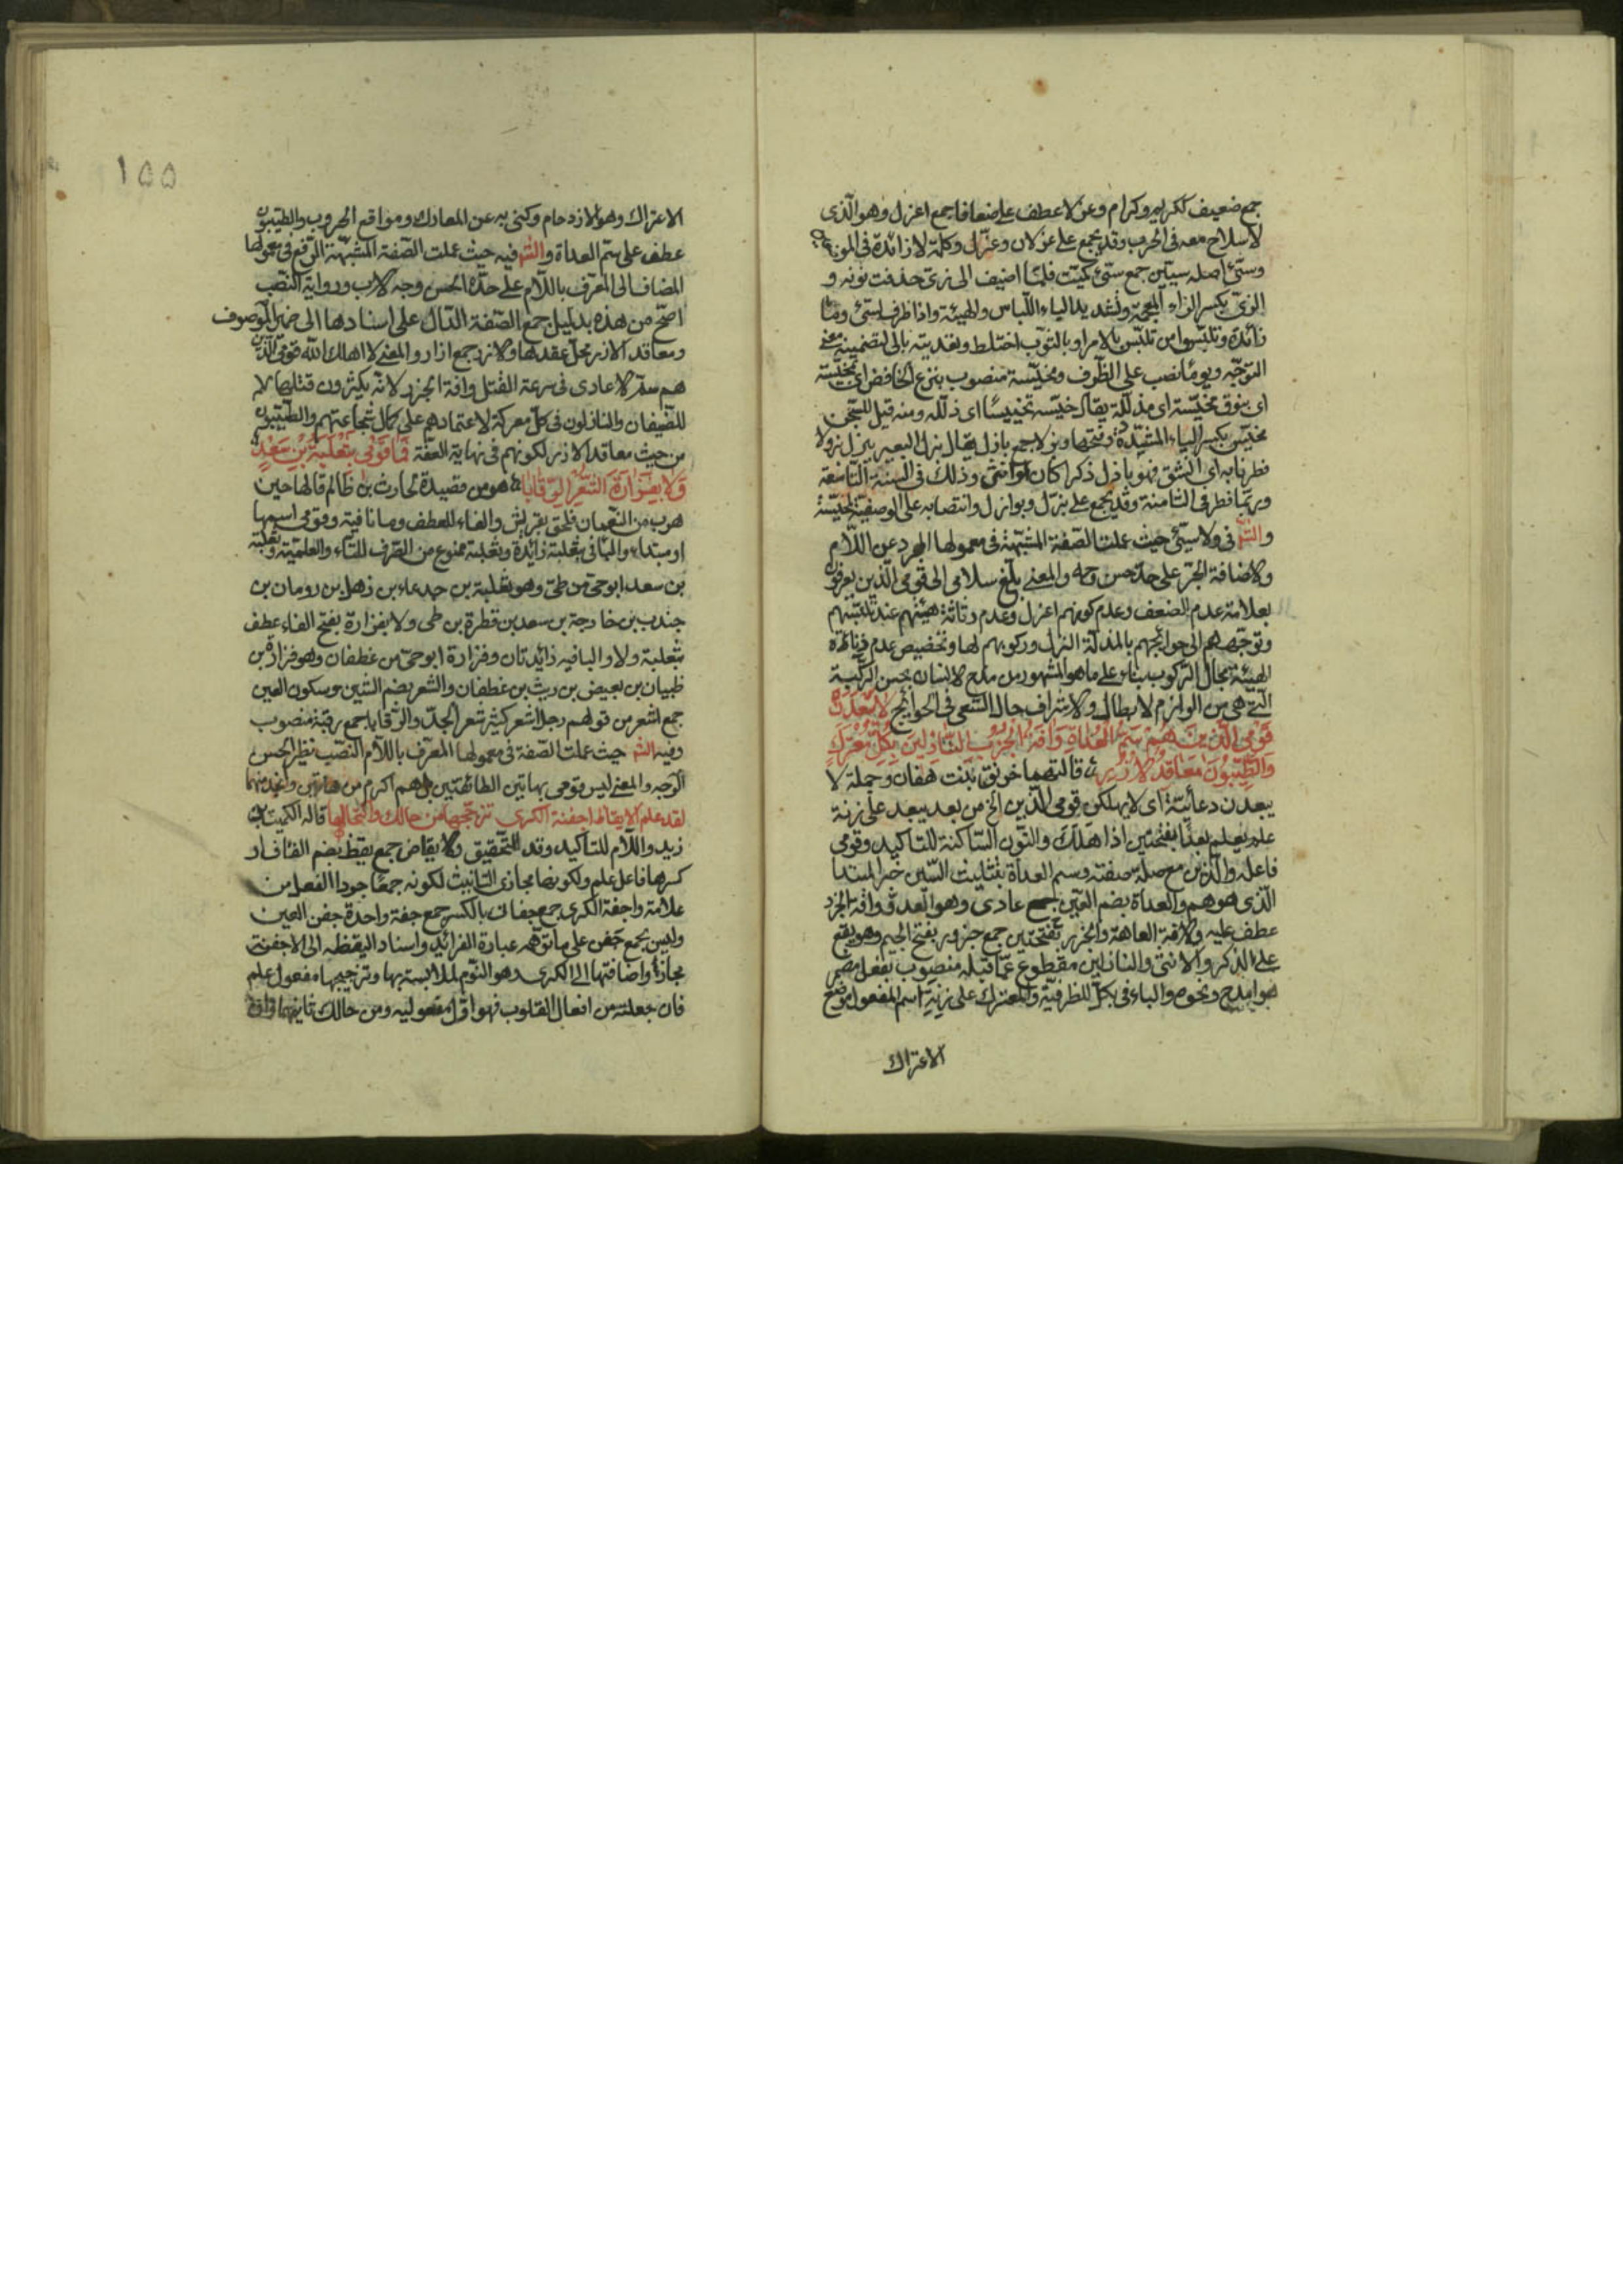 جمع ضعيف ككريم وكرام وعزلا عطف على ضعافا جمع اعزل وهو الذى
لا سلاح معه فى الحرب وقد يجمع على عزلان وعزّل وكلمة لا زائدة فى الموضعين
وسيّئ اصله سيئين جمع سيّئ كميّت فلمّا اضيف الى زىّ حذفت نونه و
الزىّ بكسر الزاء المعجمة وتشديد الياء اللّباس والهيئة واذا ظرف لسيّئ وما
زائدة وتلبّسوا من تلبّس بالامر او بالثوب اختلط وتعديته بالى لتضمينه معنى
التوجّه ويومًا نصب على الظرف ومخيّسة منصوب بنزع الخافض اى بمخيّسة
اى بنوق مخيّسة اى مذلّلة يقال خيّسه تخييسًا اى ذلّله ومنه قيل للسّجن
مخيّس بكسر الياء المشدّدة وفتحها وبزلا جمع بازل يقال بزل البعير يبزل بزولا
فطر نابه اى انشق فهو باذل ذكرا كان او انثى وذلك فى السنة التاسعة
وربّما فطر فى الثامنة وقد يجمع على بزّل وبوازل وانتصابه على الوصفيّة لمخيّسة
والشّم فى ولا سيّئ حيث عملت الصّفة المشبّهة فى معمولها المجرد عن اللّام
والاضافة الجرّ على حدّ حسن وجه والمعنى بلّغ سلامى الى قومى الّذين يعرفون
بعلامة عدم الضعف وعدم كونهم اعزل وعدم رثاثة هيئتهم عند تلبّسهم
وتوجّههم الى حوائجهم بالمذلّة البزل وركوبهم لها وتخصيص عدم
الهيئة بحال الرّكوب بناء على ماهو المشهور من ملح الانسان حسن الركبة
الّتى هى من الوازم لابطال والاشراف حال السّعى فى الحوائج لا يبعدن
قومى الّذين هم سمّ العداة وآفة الجزر النّازلين بكلّ معترك
والطّيّبون معاقد الازر قالتهما خرنق بنت هفان وجملة لا
يبعدن دعائيّة اى لا يهلكن قومى الّذين الخ من بعد يبعد على زنة
علم يعلم بعدًا بفتحتين اذا هلك والنّون السّاكنة للتاكيد وقومى
فاعله والّذين مع صلته صفته وسم العداة بتثليث السّين خبر المبتدا
الّذى هو هم والعداة بضم العين جمع عادى وهو العدوّ وافة الجزر
عطف عليه والافة العاهة والجزر بفتحتين جمع جزور بفتح الجيم وهو يقع
على الذكر والانثى والنازلين مقطوع عمّا قبله منصوب بفعل مضمر
هو امدح ونحوه والباء فى بكلّ للظرفيّة والمعترك على زنة اسم المفعول موضع
الاعتراك
١٥٥
الاعتراك وهو الازدحام وكنى به عن المعارك ومواقع الحروب والطيّبون
عطف على سمّ العداة والشّم فيه حيث عملت الصّفة المشبّهة الرّفع فى معمولها
المضاف الى المعرّف باللّام على حدّ الحسن وجه الاب ورواية النّصب
اصحّ من هذه بدليل جمع الصّفة الدّال على اسنادها الى ضمير الموصوف
ومعاقد الازر محلّ عقدها والازر جمع ازار والمعنى لا اهلك اللّه قومى الّذين
هم سمّ الاعادى فى سرعة القتل وافة الجزر لانّهم يكثرون قتلها لا
للضّيفان والنازلون فى كلّ معركة لاعتمادهم على كمال شجاعتهم والطّيّبون
من حيث معاقد الازر لكونهم فى نهاية العفّة فما قومى بثعلبة بن سعد
ولا بفزارة الشّعر الرّقابا هو من قصيدة لحارث بن ظالم قالها حين
هرب من النّعمان فلحق بقريش والفاء للعطف وما نافية وقومى اسمها
او مبتداء والباء فى بثعلبة زائدة وثعلبة ممنوع من الصّرف للتّاء والعلميّة وثعلبة
بن سعد ابو حىّ من طىّ وهو ثعلبة بن جدعاء بن ذهل بن رومان بن
جندب بن خارجة بن سعد بن فطرة بن طى ولا بفزارة بفتح الفاء عطف
بثعلبة ولا والبا فيه زائدتان وفزارة ابو حىّ من غطفان وهو فزارة بن
ظبيان بن بغيض بن ريث بن غطفان والشعر بضم الشّين وسكون العين
جمع اشعر من قولهم رجل اشعر كثير شعر الجسد والرّقابا جمع رقبة منصوب
وفيه الشم حيث عملت الصّفة فى معمولها المعرّف باللّام النّصب نظير الحسن
الوجه والمعنى ليس قومى بهاتين الطائفتين بل هم اكرم من هاتين وابعد منهما
لقد علم الايقاظ اخفية الكرى تزجّجها من حالك واكتحالها قاله الكميت بن
زيد واللّام للتاكيد وقد للتّحقيق والايقاظ جمع يقظ بضم القاف او
كسرها فاعل علم ولكونها مجازى التانيث لكونه جمعًا جرد الفعل من
علامة واجفنة الكرى جمع جفان بالكسر جمع جفنة واحدة جفن العين
وليس يجمع جفن على ما توهّمه عبارة الفرائد واسناد اليقظه الى الاجفنة
مجازًا واضافتها الى الكرى وهو النّوم لملابسته بها وتزجيجها مفعول علم
فان جعلته من افعال القلوب فهو اوّل مفعوليه ومن حالك ثانيهما